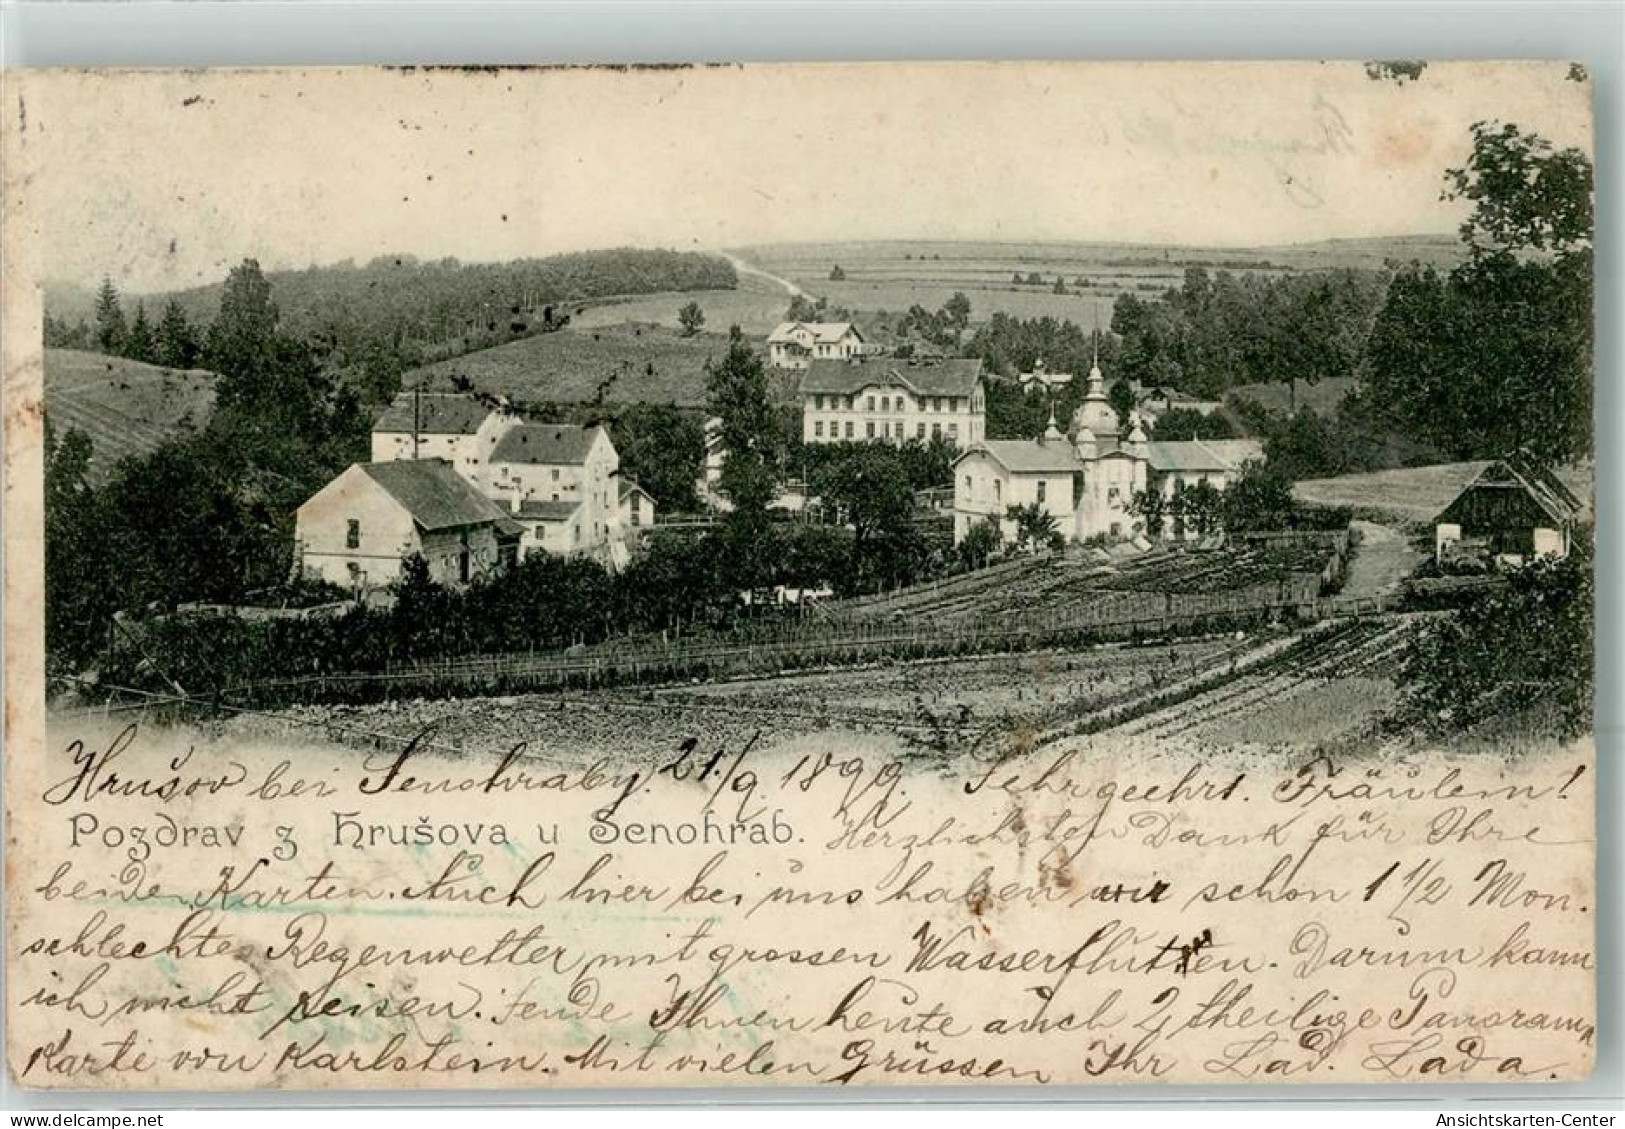 Hrušov bei Senohraby. 21./9. 1899. Sehrgeehrt. Fräulein!
Pozdrav z Hrušova u Senohrab. Herzlichsten Dank für Ihre
beiden Karten. Auch hier bei uns haben wir schon 1 1/2 Mon.
schlechtes Regenwetter, mit grossen Wasserfluten. Darum kann
ich nicht reisen. Sende Ihnen heute auch 2 theilige Panorama
Karte von Karlstein. Mit vielen Grüssen Ihr Lad. Lada.
delcampe.net
Ansichtskarten-Center